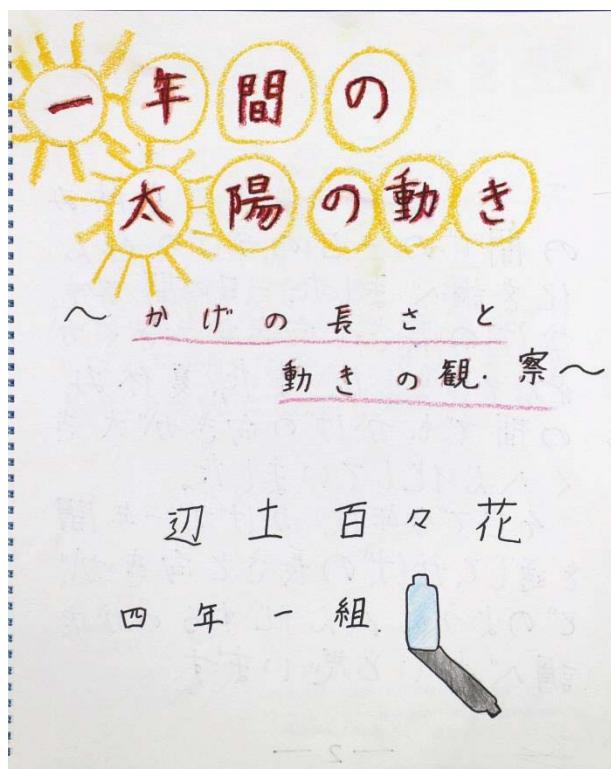 一年間の
太陽の動き
~かげの長さと
動きの観察~
辺土百々花
四年一組